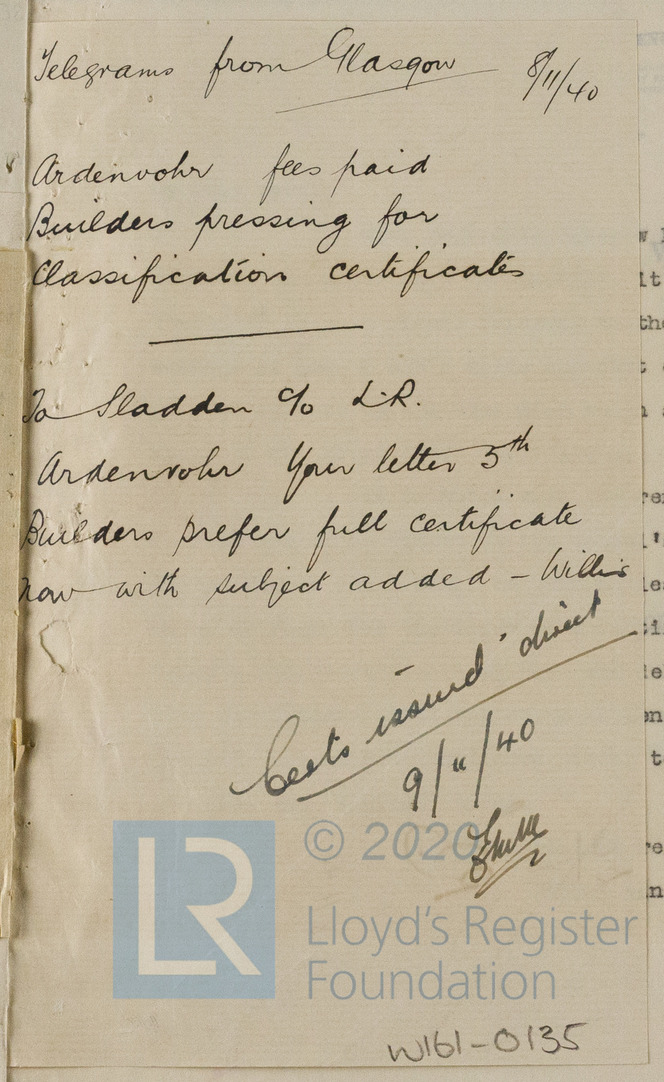 Telegrams from Glasgow 8/11/40
Ardenvohr fees paid
Builders pressing for
Classification certificates
To Sladden c/o L.R.
Ardenvohr Your letter 5th
Builders prefer full certificate
now with subject added - Willis
Certs issued direct
9/11/40
LR
© 2020
Lloyd's Register
Foundation
W161-0135